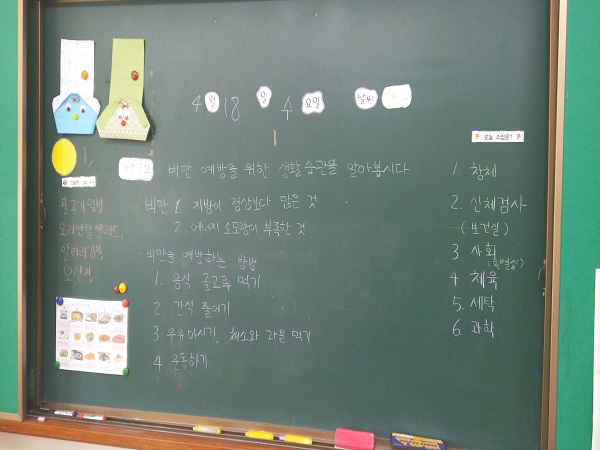 4 월 18 일 수 요일 날씨
오늘 수업은?
비만 예방을 위한 생활습관을 알아봅시다
불고기덮밥,
오리엔탈샐러드,
알타리김치,
오렌지
비만 1. 지방이 정상보다 많은 것
2. 에너지 소모량이 부족한 것
비만을 예방하는 방법
1. 음식 골고루 먹기
2. 간식 줄이기
3 우유마시기, 채소와 과일 먹기
4 운동하기
1. 창체
2. 신체검사
(보건실)
3 사회
(특별실)
4 체육
5. 세탁
6. 과학